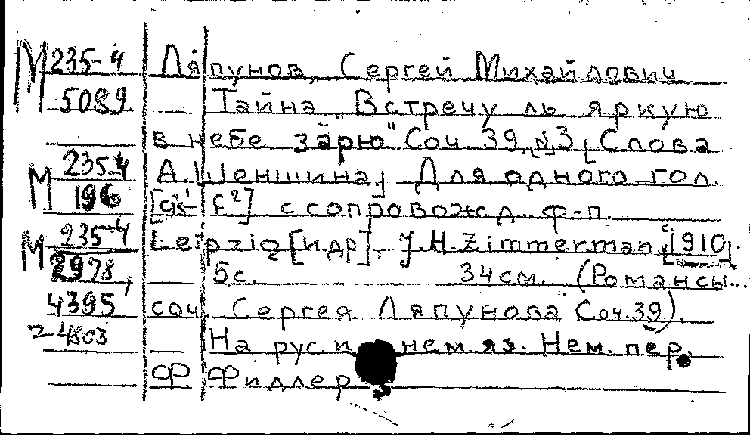 М 235-4 Ляпунов, Сергей Михайлович
5089 Тайна „Встречу ль яркую
в небе зарю" Соч 39, №3, [Слова
М 235-4 А. Шеншина], Для одного гол.
196 [cis¹-f²] с сопровожд. ф-п.
М 235-4 Leipzig [и др], J.H. Zimmerman, [1910].
2978, 5с. 34см. (Романсы
4395 соч. Сергея Ляпунова Соч.39).
На рус и нем яз. Нем. пер.
Ф Фидлер